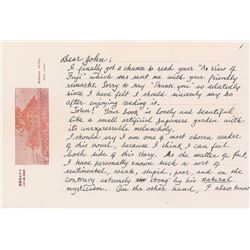 1
Dear John;
I finally got a chance to read your "No View of
Fuji" which was sent me with your friendly
remarks. Sorry to say "Thank you" so belatedly
since I have felt I should sincerely say so
after enjoying reading it.
John! Your book is lovely and beautiful
like a small artificial Japanese garden with
its unexpressable melancholy.
I should say I am one of most chosen reader
of this novel, because I think I can feel
both side of this story. As the matter of fact,
I have personally known such a sort of
sentimental, weak, stupid, poor, and on the
contrary extremely strong by his natural
mysticism. On the other hand, I also know